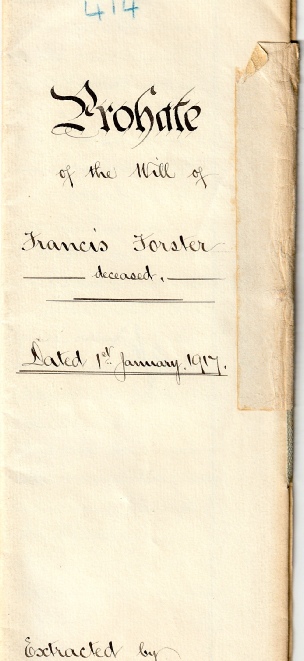 414
Probate
of the Will of
Francis Forster
deceased.
Dated 1st January. 1917.
Extracted by